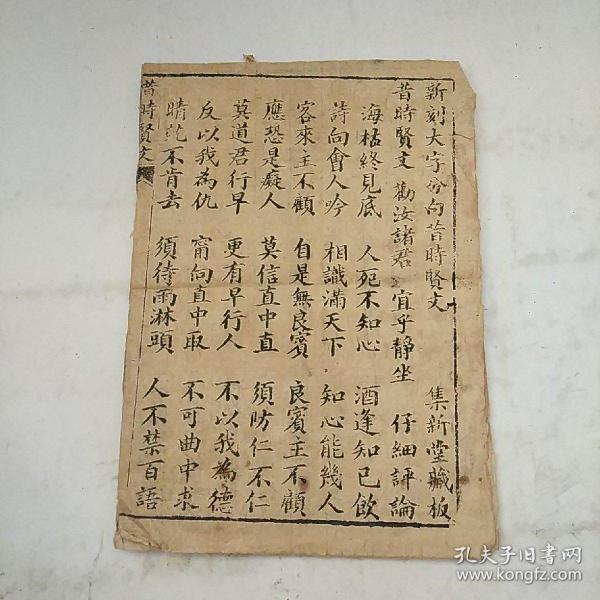 新刻大字分句昔時賢文 集新堂藏板
昔時賢文 勸汝諸君 宜乎靜坐 仔細評論
海枯終見底 人死不知心 酒逢知已飲
詩向會人吟 相識滿天下 知心能幾人
客來主不顧 自是無良賓 良賓主不顧
應恐是癡人 莫信直中直 須防仁不仁
莫道君行早 更有早行人 不以我為德
反以我為仇 甯向直中取 不可曲中求
晴乾不肯去 須待雨淋頭 人不禁百語
昔時賢文
孔夫子旧书网
www.kongfz.com